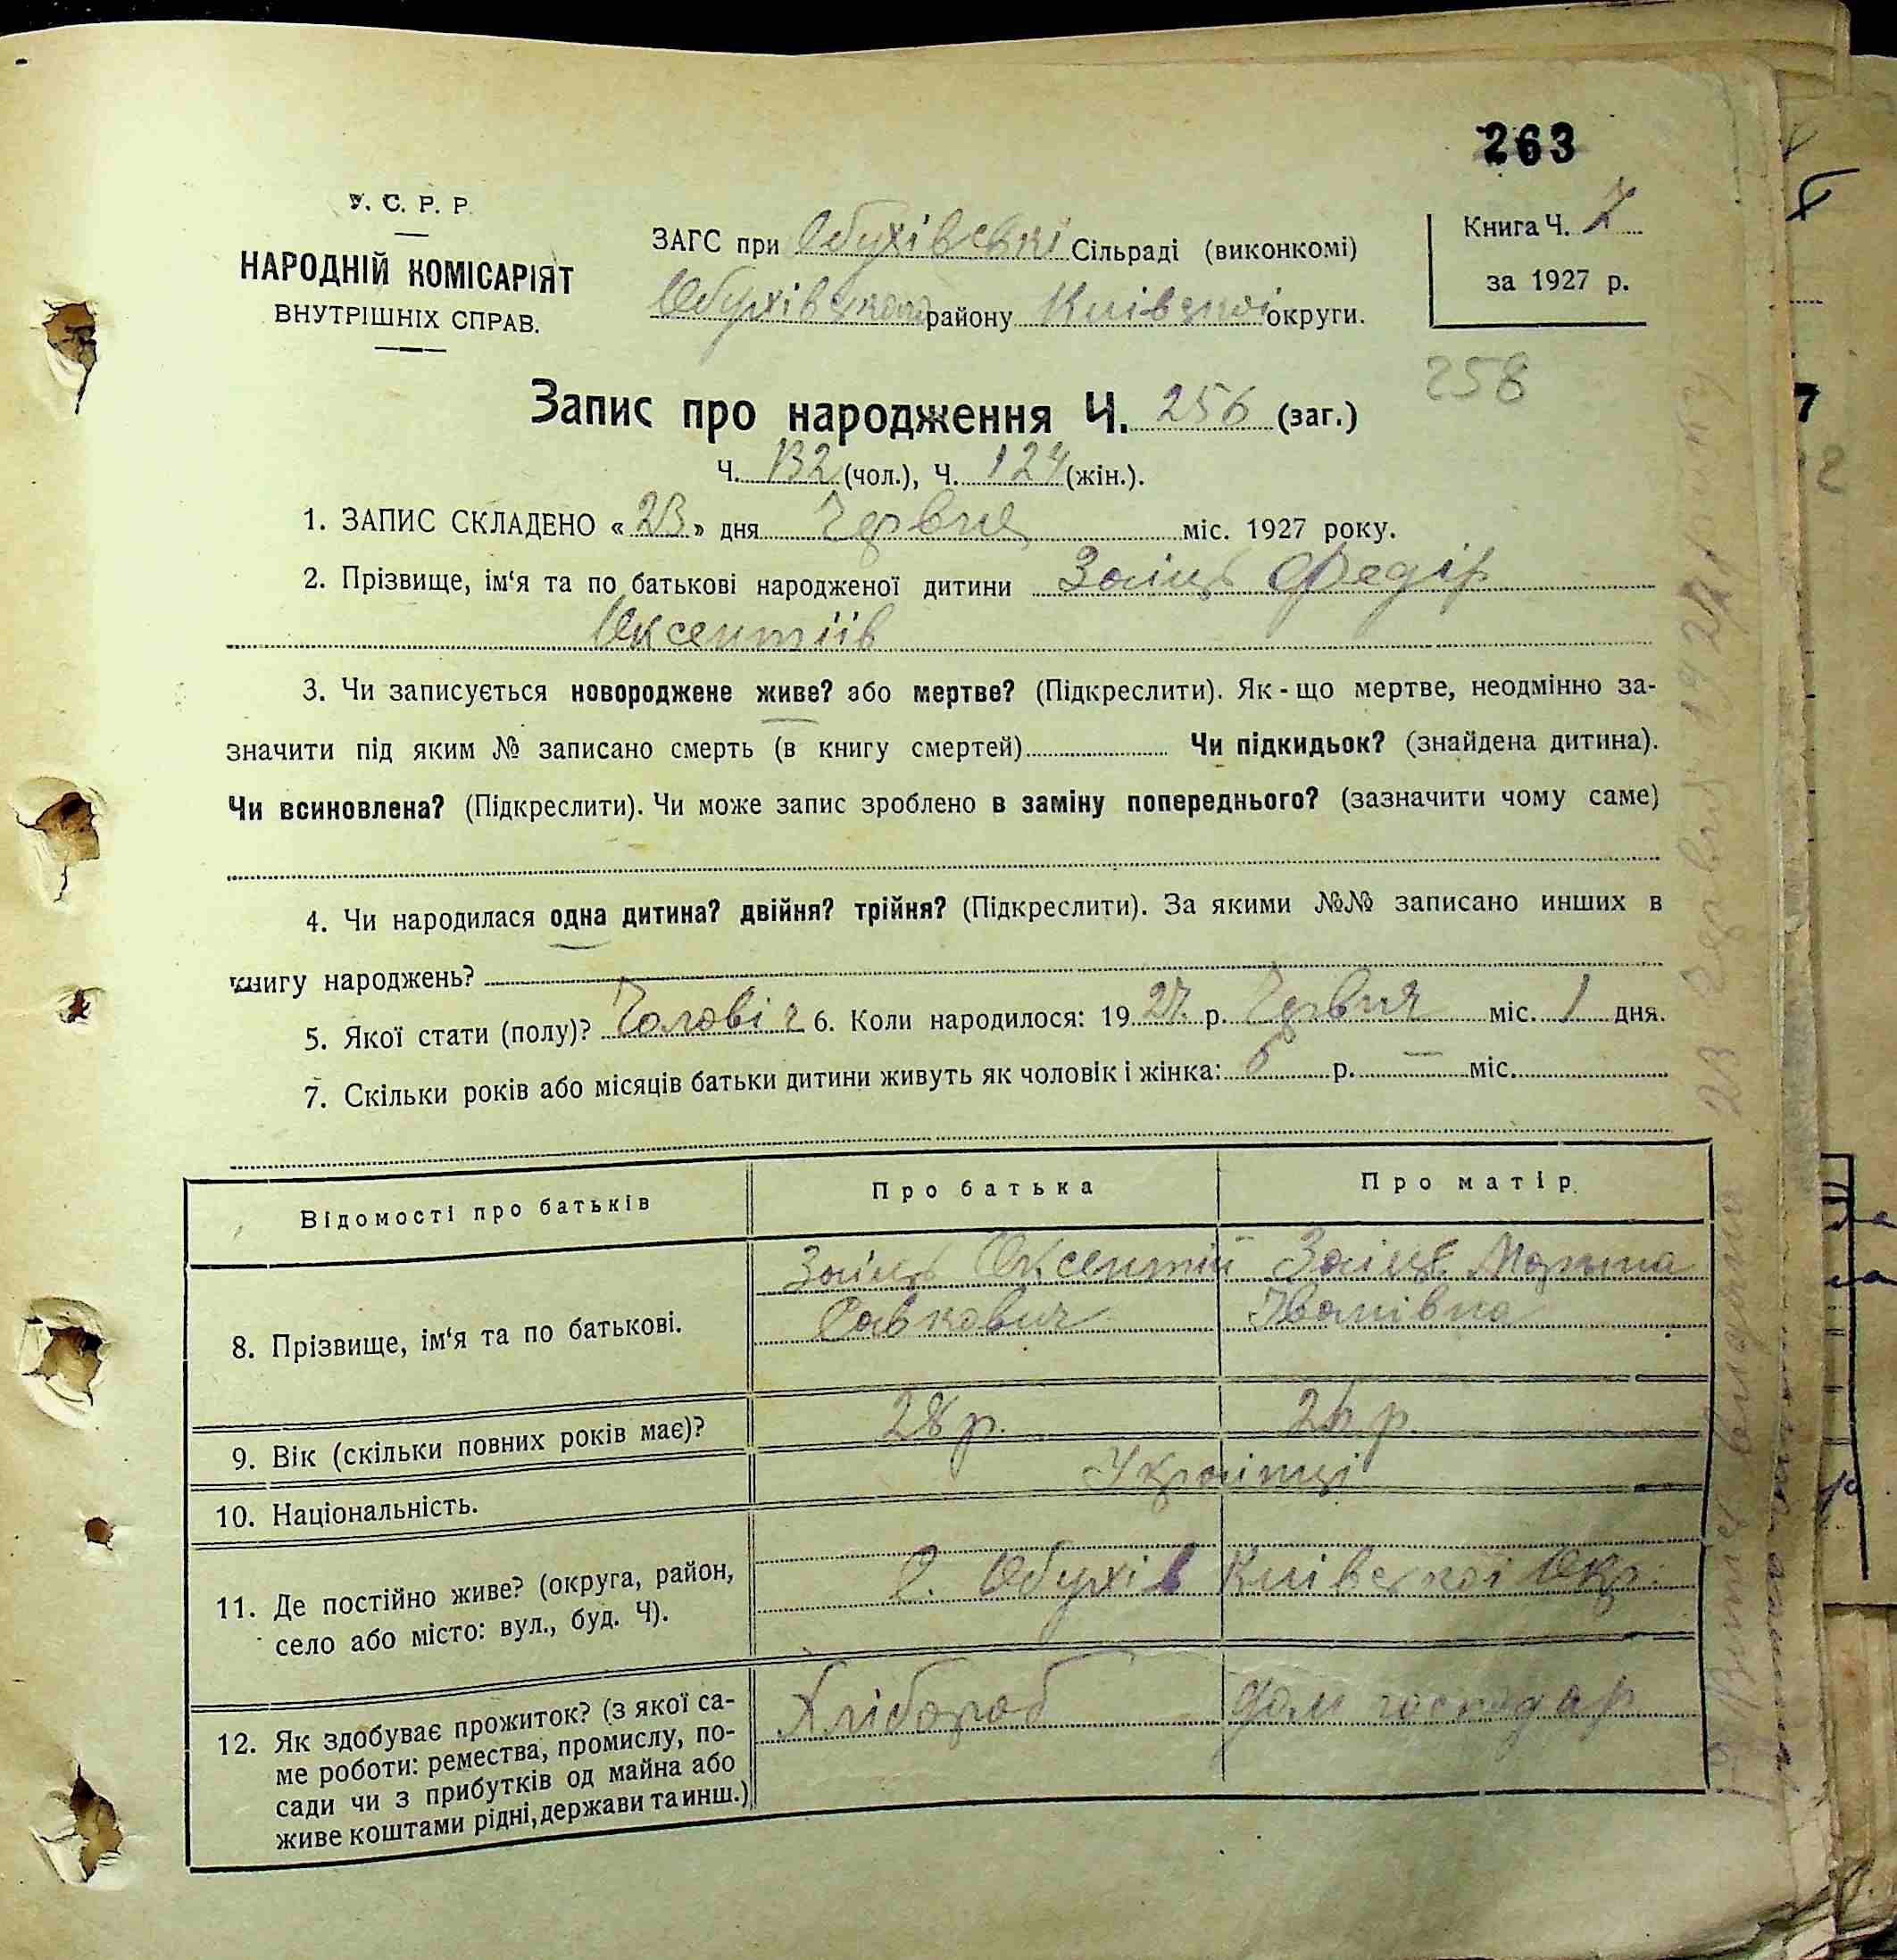 263
У. С. Р. Р.
НАРОДНІЙ КОМІСАРІЯТ
ВНУТРІШНІХ СПРАВ.
ЗАГС при Обухівські Сільраді (виконкомі)
Обухівського району Київської округи.
Книга Ч.
за 1927 р.
258
Запис про народження Ч. 256 (заг.)
Ч. 132 (чол.), Ч. 124 (жін.).
1. ЗАПИС СКЛАДЕНО « 23 » дня Червня міс. 1927 року.
2. Прізвище, ім'я та по батькові народженої дитини Заіць Федір
Оксентіів
3. Чи записується новороджене живе? або мертве? (Підкреслити). Як-що мертве, неодмінно за-
значити під яким № записано смерть (в книгу смертей) Чи підкидьок? (знайдена дитина).
Чи всиновлена? (Підкреслити). Чи може запис зроблено в заміну попереднього? (зазначити чому саме)
4. Чи народилася одна дитина? двійня? трійня? (Підкреслити). За якими №№ записано инших в
книгу народжень?
5. Якої стати (полу)? Чоловіч 6. Коли народилося: 19 27. р. Червня міс. 1 дня.
7. Скільки років або місяців батьки дитини живуть як чоловік і жінка: 6 р. — міс.
Відомості про батьків
Про батька
Про матір.
8. Прізвище, ім'я та по батькові.
Заіць Оксентій
Савкович
Заіць Марина
Іванівна
9. Вік (скільки повних років має)?
28 р.
26 р.
10. Національність.
Украінці
11. Де постійно живе? (округа, район,
село або місто: вул., буд. Ч).
с. Обухів Киівськоі Окр.
12. Як здобуває прожиток? (з якої са-
ме роботи: ремества, промислу, по-
сади чи з прибутків од майна або
живе коштами рідні, держави та инш.)
Хлібороб
Дом господар